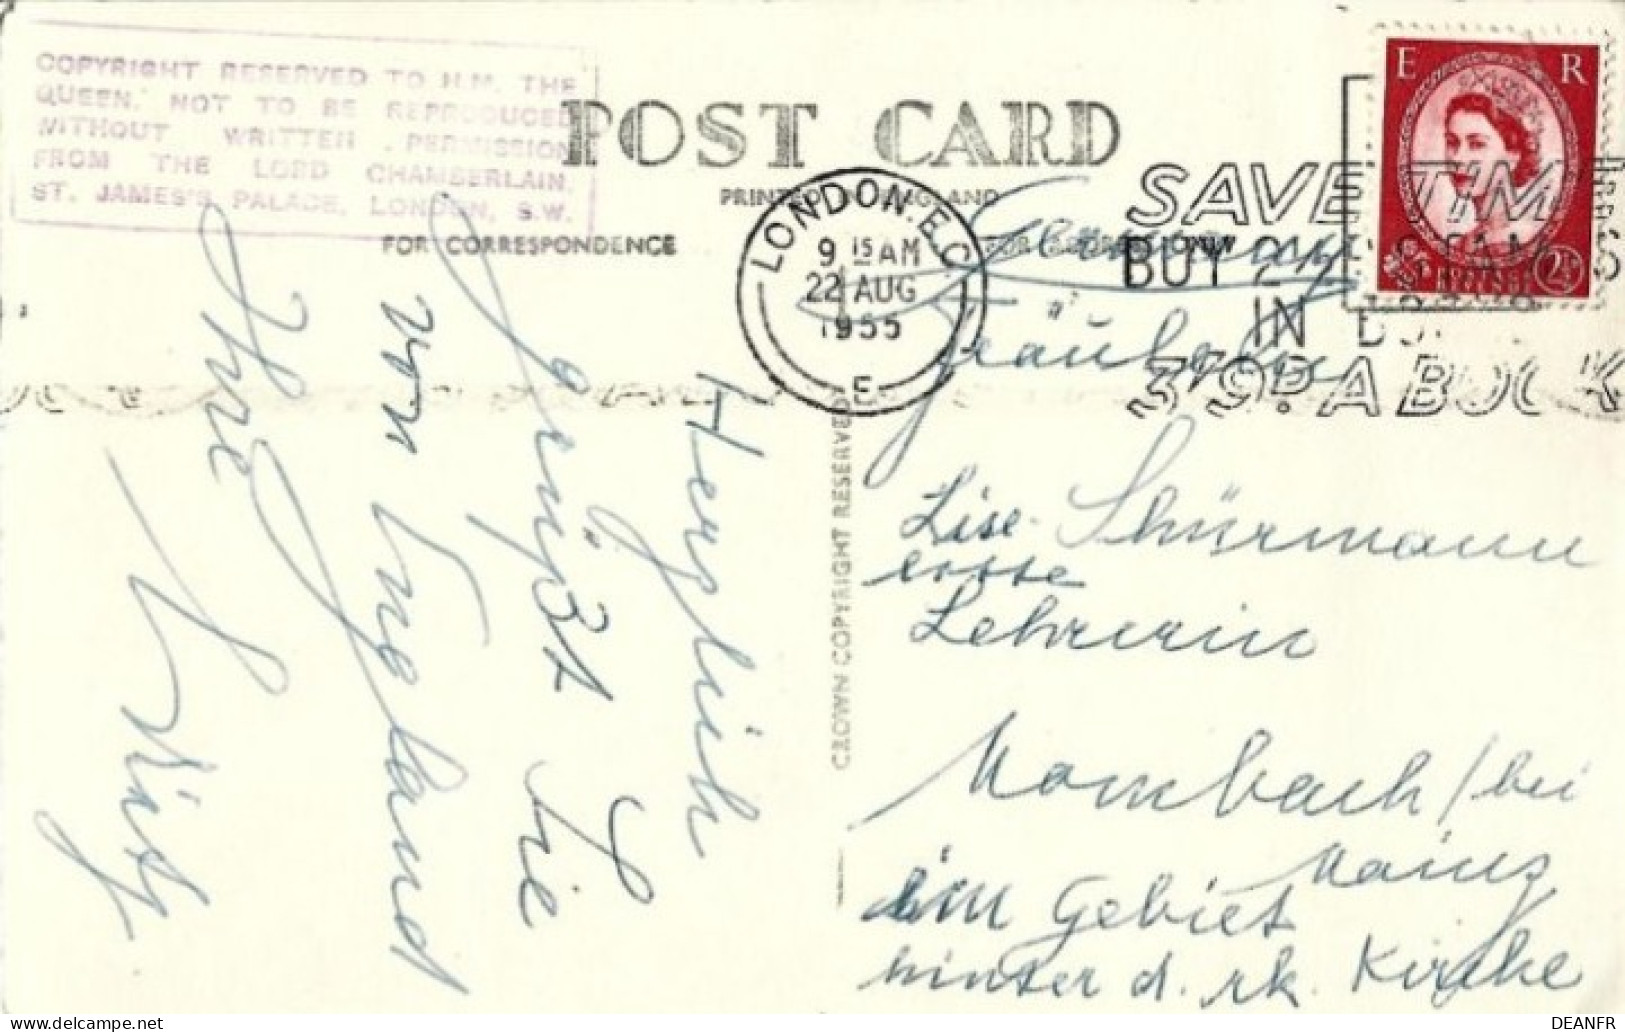 COPYRIGHT RESERVED TO H.M. THE
QUEEN. NOT TO BE REPRODUCED
WITHOUT WRITTEN PERMISSION
FROM THE LORD CHAMBERLAIN,
ST. JAMES'S PALACE, LONDON, S.W.
POST CARD
PRINTED IN ENGLAND
FOR CORRESPONDENCE
FOR ADDRESS ONLY
LONDON. E.C.
9 15 AM
22 AUG
1955
E
SAVE TIME
BUY 2½D STAMPS
IN BOOKS
3/9D. A BOOK
E R
2½D
CROWN COPYRIGHT RESERVED
Herzlich
grüßt Sie
von England
Ihre
Germany
Fräulein
Lise Schürmann
erste
Lehrerin
Mombach/bei
Mainz
im Gebiet
hinter d. rk. Kirche
DEANFR